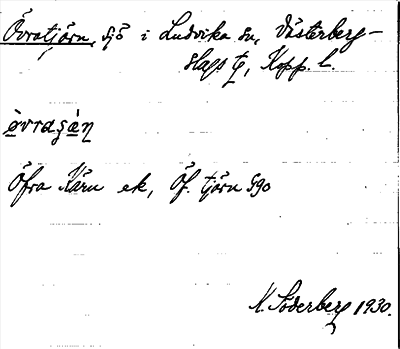 Övratjärn, sjö i Ludvika sn, Västerberg-
slags tg, Kopp. l.
Öfra Kärn ek, Öf. tjärn 590
K. Söderberg 1930.